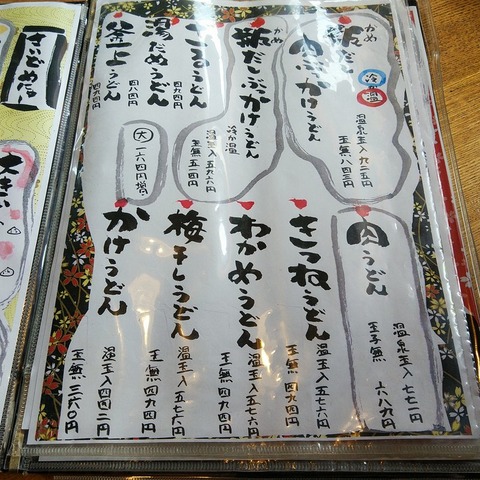 かめ
瓶だし
肉ぶっかけうどん
冷か温
温泉玉入 九二五円
玉無 八四三円
かめ
瓶だしぶっかけうどん
冷か温
温玉入 五九六円
玉無 五一四円
ざるうどん
四九四円
湯だめうどん
四八四円
釜一上うどん
四九四円
大
一六四円増
肉うどん
温泉玉入 七七一円
玉子無 六八九円
きつねうどん
温玉入 五七六円
玉無 四九四円
わかめうどん
温玉入 五七六円
玉無 四九四円
梅干しうどん
温玉入 五七六円
玉無 四九四円
かけうどん
温玉入 四四二円
玉無 三六〇円
さいどめにゅー
大きい